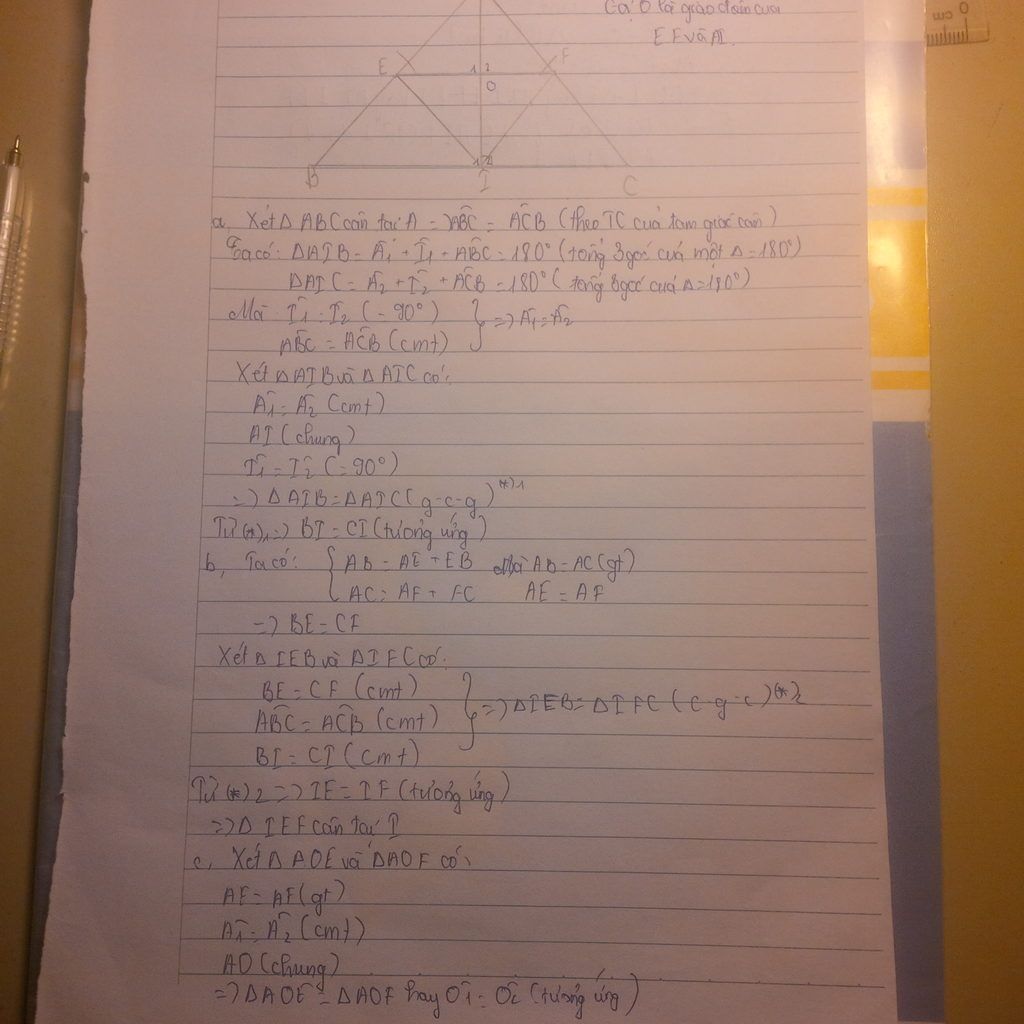 Gọi O là giao điểm của
EF và AI.
0 cm
E
F
1 2
O
1 2
B
I
C
a, Xét Δ ABC cân tại A => ABĈ = AĈB (theo TC của tam giác cân)
Ta có: ΔAIB = Â1 + Î1 + AB̂C = 180° (tổng 3 góc của một Δ = 180°)
ΔAIC = Â2 + Î2 + AĈB = 180° (tổng 3 góc của Δ = 180°)
Mà Î1 = Î2 (= 90°)
AB̂C = AĈB (cmt)
} => Â1 = Â2
Xét Δ AIB và Δ AIC có:
Â1 = Â2 (cmt)
AI (chung)
Î1 = Î2 (= 90°)
=> Δ AIB = Δ AIC (g-c-g) (*)1
Từ (*)1 => BI = CI (tương ứng)
b, Ta có: { AB = AE + EB Mà AB = AC (gt)
AC = AF + FC AE = AF
=> BE = CF
Xét Δ IEB và Δ IFC có:
BE = CF (cmt)
AB̂C = AĈB (cmt)
BI = CI (cmt)
} => Δ IEB = Δ IFC (c-g-c) (*)2
Từ (*)2 => IE = IF (tương ứng)
=> Δ IEF cân tại I
c, Xét Δ AOE và Δ AOF có:
AE = AF (gt)
Â1 = Â2 (cmt)
AO (chung)
=> Δ AOE = Δ AOF hay Ô1 = Ô2 (tương ứng)